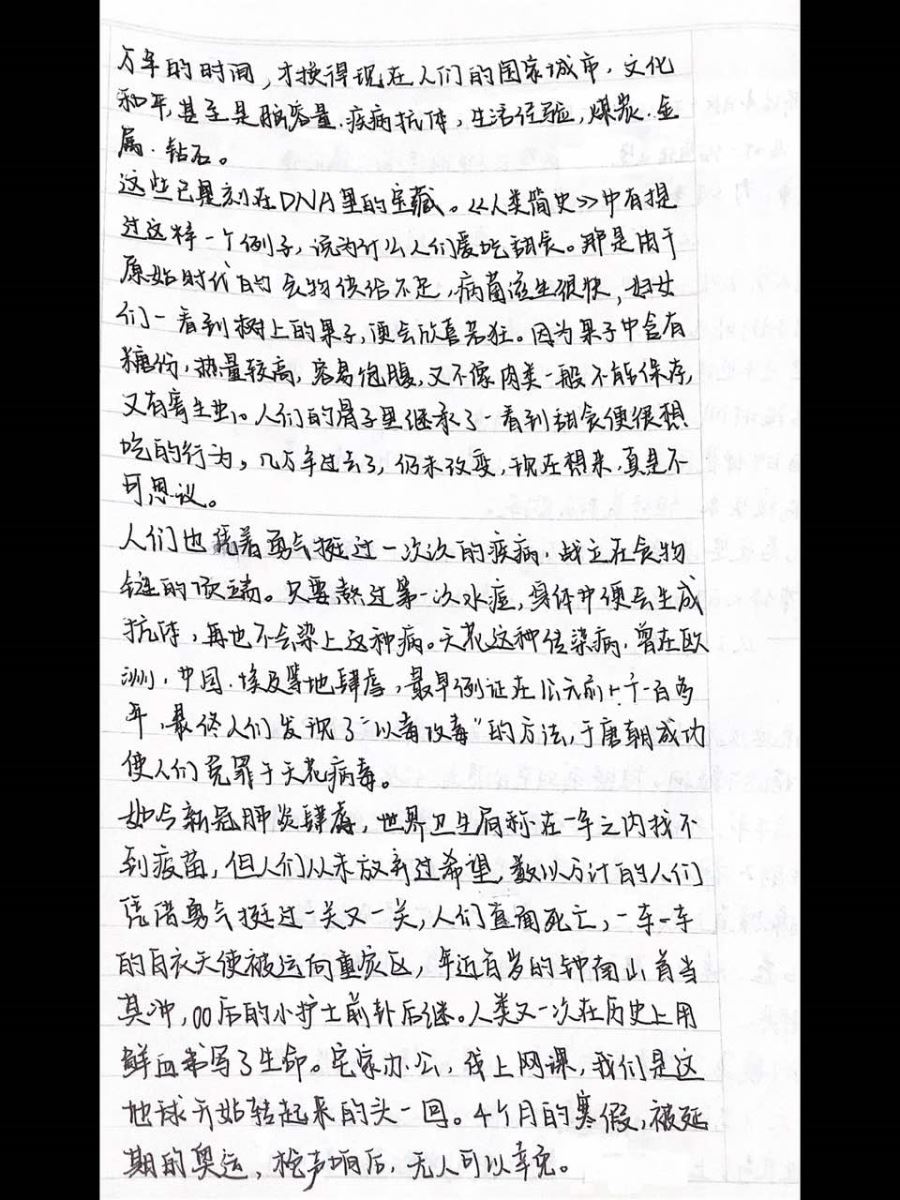 万年的时间，才换得现在人们的国家城市，文化
和平，甚至是脑容量，疾病抗体，生活经验，煤炭，金
属，钻石。
这些已是刻在DNA里的宝藏。《人类简史》中有提
过这样一个例子，说为什么人们爱吃甜食。那是由于
原始时代的食物供给不足，病菌滋生很快，妇女
们一看到树上的果子，便会欣喜若狂。因为果子中含有
糖份，热量较高，容易饱腹，又不像肉类一般不能保存，
又有寄生虫。人们的骨子里继承了一看到甜食便很想
吃的行为，几万年过去了，仍未改变，现在想来，真是不
可思议。
人们也凭着勇气挺过一次次的疾病，战立在食物
链的顶端。只要熬过第一次水痘，身体中便会生成
抗体，再也不会染上这种病。天花这种传染病，曾在欧
洲，中国，埃及等地肆虐，最早例证在公元前一千一百多
年，最终人们发现了“以毒攻毒”的方法，于唐朝成功
使人们免罪于天花病毒。
如今新冠肺炎肆虐，世界卫生局称在一年之内找不
到疫苗，但人们从未放弃过希望，数以万计的人们
凭借勇气挺过一关又一关，人们直面死亡，一车一车
的白衣天使被运向重灾区，年近百岁的钟南山首当
其冲，00后的小护士前卦后继。人类又一次在历史上用
鲜血书写了生命。宅家办公，线上网课，我们是这
地球开始转起来的头一回。4个月的寒假，被延
期的奥运，枪声响后，无人可以幸免。